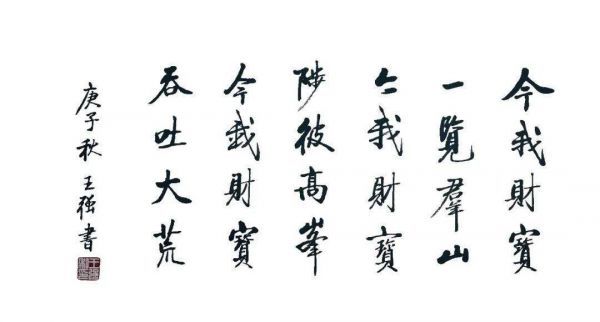 今我財寶
一覽羣山
今我財寶
陟彼高峯
今我財寶
吞吐大荒
庚子秋 王强書